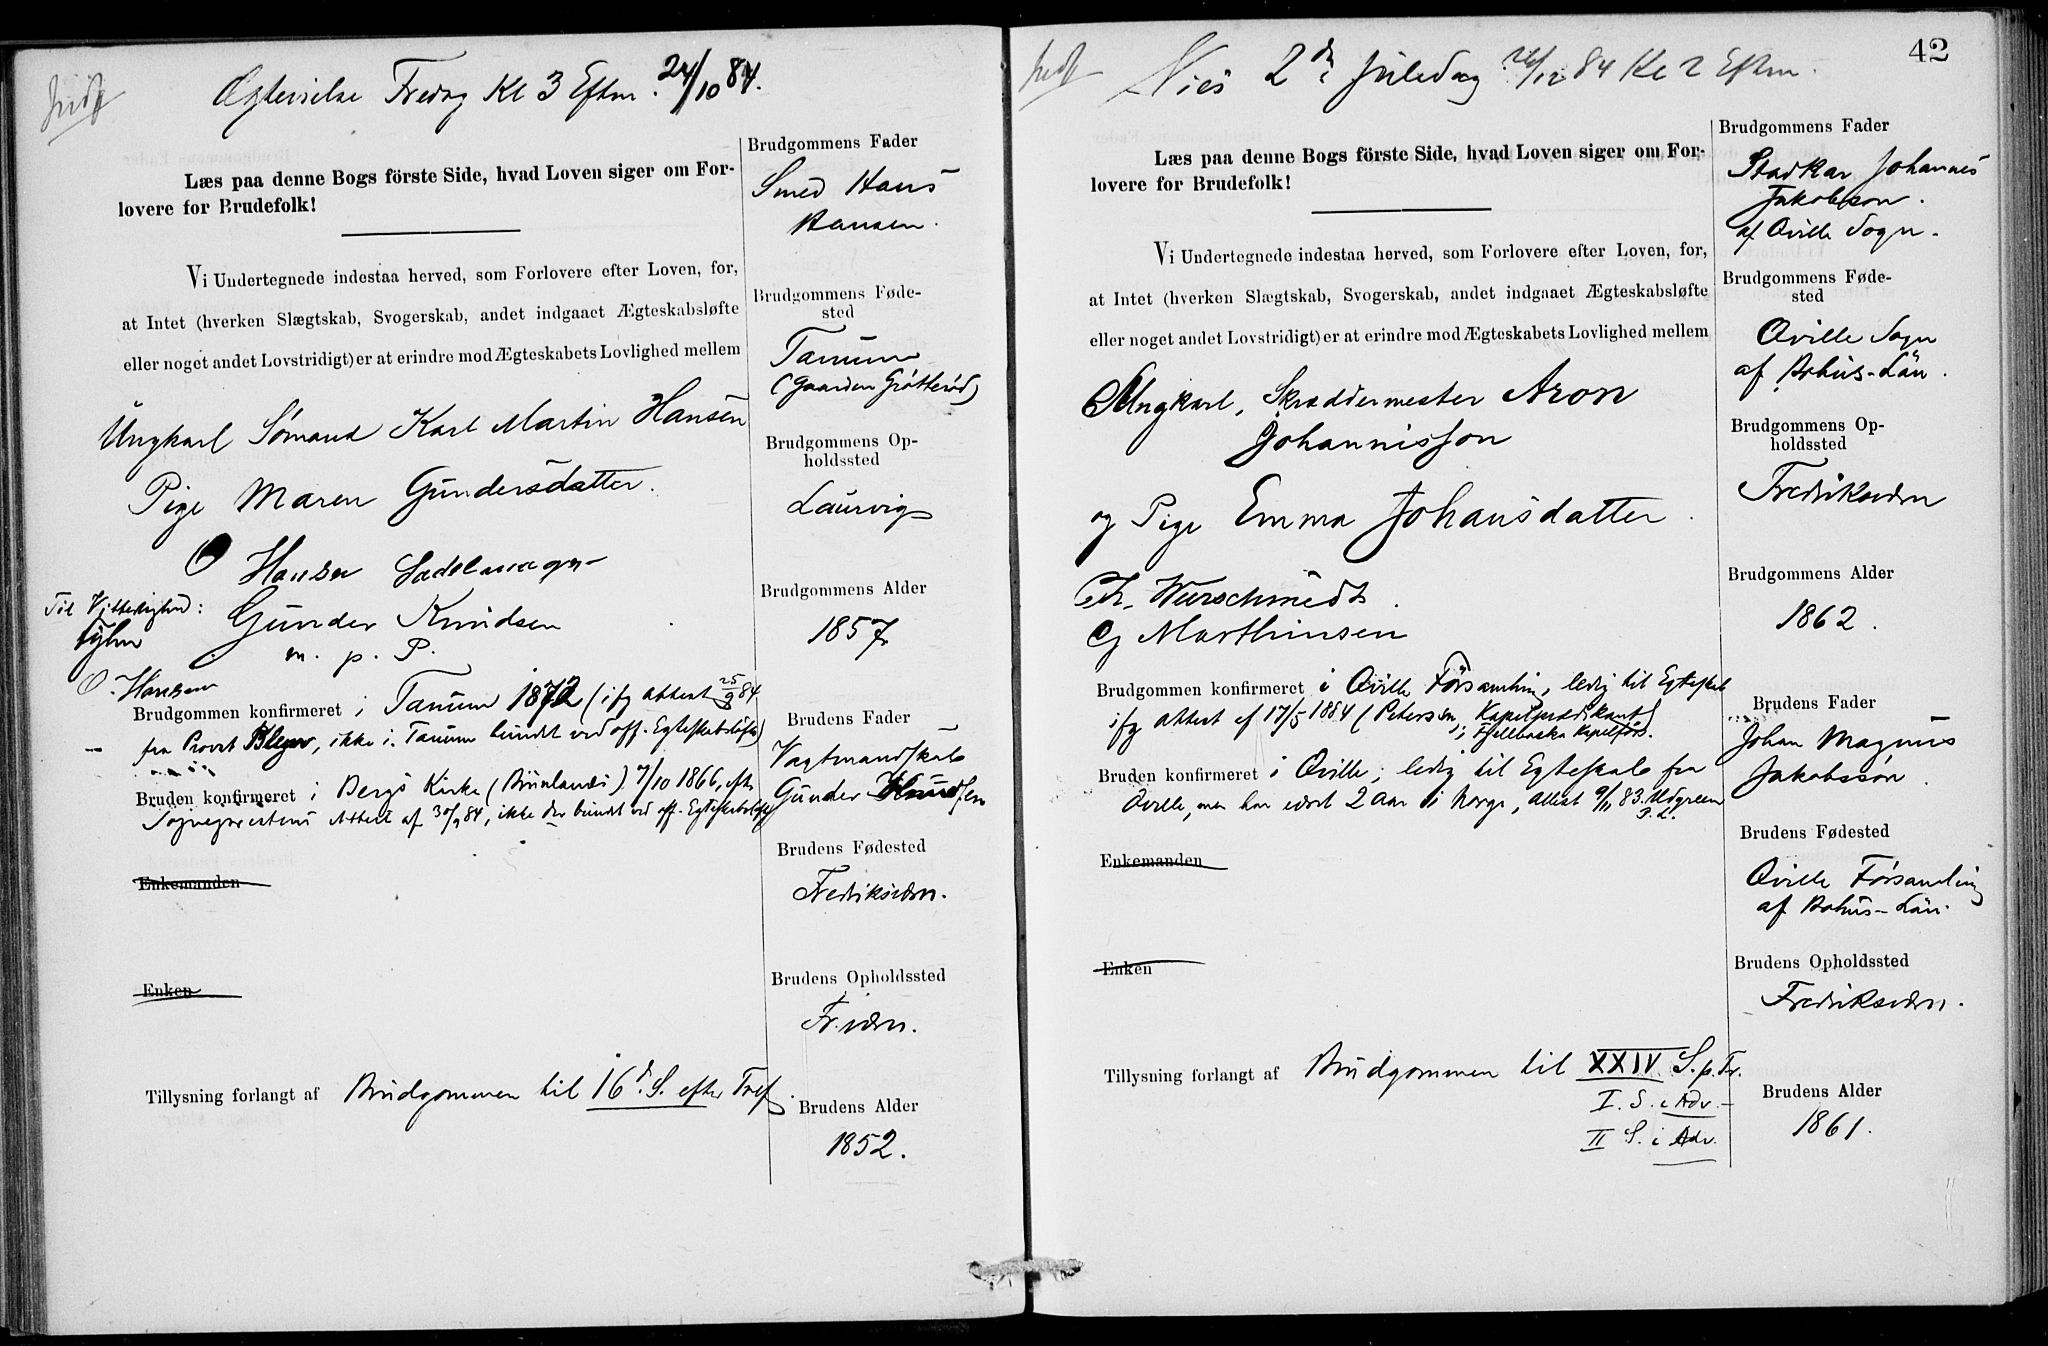 indf
Ægtevielse Fredag Kl 3 Eftm. 24/10 84.
Læs paa denne Bogs förste Side, hvad Loven siger om For-
lovere for Brudefolk!
Vi Undertegnede indestaa herved, som Forlovere efter Loven, for,
at Intet (hverken Slægtskab, Svogerskab, andet indgaaet Ægteskabsløfte
eller noget andet Lovstridigt) er at erindre mod Ægteskabets Lovlighed mellem
Ungkarl Sømand Karl Martin Hansen
Pige Maren Gundersdatter.
O Hansen Sadelmager
Til Vitterlighed:
Gunder Knudsen
m. p. P.
O. Hansen
Brudgommen konfirmeret i Tanum 1872 (ifg Attest 25/9 84
fra Provst , ikke i Tanum bundet ved off. Egteskabsløfte)
Bruden konfirmeret i Bergs Kirke (Brunlanæs) 7/10 1866, efter
Sognepræstens Attest af 30/9 84, ikke der bundet ved off. Egteskabsløfte
Enkemanden
Enken
Tillysning forlangt af Brudgommen til 16d. S. efter Tref.
Brudgommens Fader
Smed Hans
Hansen.
Brudgommens Føde-
sted
Tanum
(Gaarden Grötteröd)
Brudgommens Op-
holdssted
Laurvig
Brudgommens Alder
1857
Brudens Fader
Vagtmandskab
Gunder Knudsen
Brudens Fødested
Fredriksværn.
Brudens Opholdssted
Fr.værn.
Brudens Alder
1852.
42
indf
Vies 2den Juledag 26/12 84 Kl 2 Eftm.
Læs paa denne Bogs förste Side, hvad Loven siger om For-
lovere for Brudefolk!
Vi Undertegnede indestaa herved, som Forlovere efter Loven, for,
at Intet (hverken Slægtskab, Svogerskab, andet indgaaet Ægteskabsløfte
eller noget andet Lovstridigt) er at erindre mod Ægteskabets Lovlighed mellem
Ungkarl, Skræddermester Aron
Johannisson
og Pige Emma Johansdatter.
Chr. Wurschmidt.
Marthinsen
Brudgommen konfirmeret i Qville Församling, ledig til Egteskab
ifg Attest af 17/5 1884 (Petersson, Kapelprædikant
i Fjellbacka Kapelförs.)
Bruden konfirmeret i Qville; ledig til Egteskab fra
Qville, men har været 2 Aar i Norge, Attest 9/11 83. Udgreen
P. L.
Enkemanden
Enken
Tillysning forlangt af Brudgommen til XXIV S. p. Tr.
I. S. i Adv. –
II S. i Adv.
Brudgommens Fader
Stadkar Johannes
Jakobsson.
af Qville Sogn.
Brudgommens Føde-
sted
Qville Sogn
af Bohus-Län.
Brudgommens Op-
holdssted
Fredriksværn
Brudgommens Alder
1862.
Brudens Fader
Johan Magnus
Jakobssön.
Brudens Fødested
Qville Församling
af Bohus-Län.
Brudens Opholdssted
Fredriksværn.
Brudens Alder
1861.